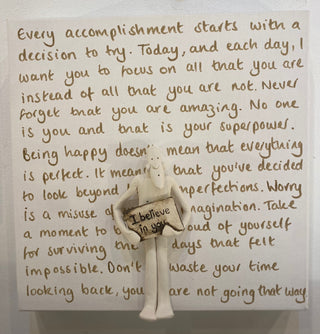 Every accomplishment starts with a
decision to try. Today, and each day, I
want you to focus on all that you are
instead of all that you are not. Never
forget that you are amazing. No one
is you and that is your superpower.
Being happy doesn't mean that everything
is perfect. It mean that you've decided
to look beyond imperfections. Worry
is a misuse o magination. Take
a moment to b oud of yourself
for surviving the days that felt
impossible. Don't waste your time
looking back, you are not going that way
I believe
in you